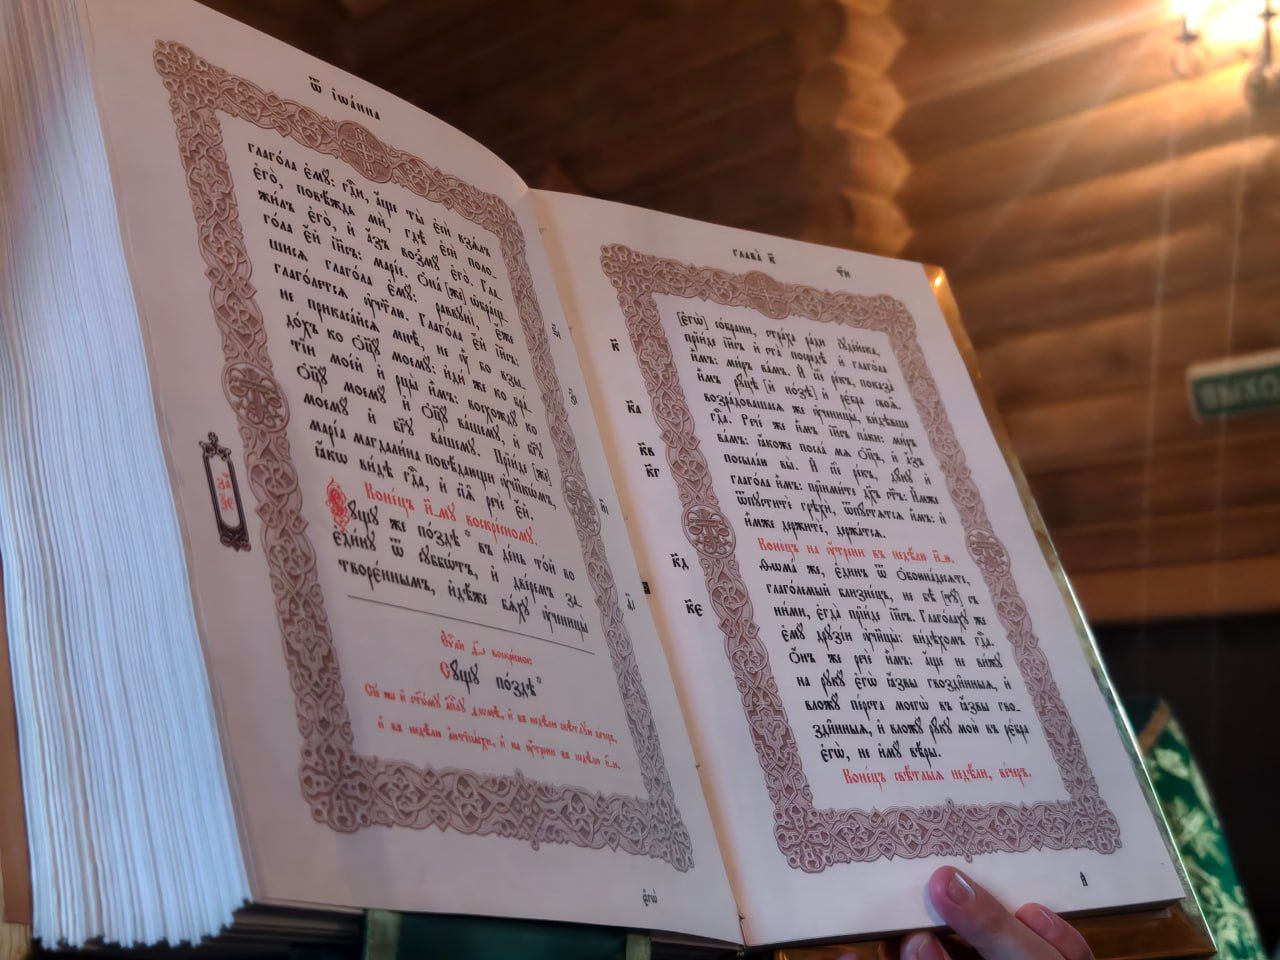 Ѿ іѡа́нна
глаго́ла є҆мꙋ̀: гдⷭ҇и, а҆́ще ты̀ є҆сѝ взѧ́лъ
є҆го̀, повѣ́ждь мѝ, гдѣ̀ є҆сѝ поло-
жи́лъ є҆го̀, и҆ а҆́зъ возмꙋ̀ є҆го̀. Гла-
го́ла є҆́й і҆и҃съ: марі́е. Ѻ҆на́ [же] ѡ҆бра́щ-
шисѧ глаго́ла є҆мꙋ̀: раввꙋні̀, є҆́же
глаго́летсѧ ᲂу҆чт҃лю. Глаго́ла є҆́й і҆и҃съ:
не прикаса́йсѧ мнѣ̀, не ᲂу҆̀ бо взы-
до́хъ ко ѻ҆ц҃ꙋ̀ моемꙋ̀: и҆дѝ же ко бра́-
тїи мое́й и҆ рцы̀ и҆̀мъ: восхождꙋ̀ ко
ѻ҆ц҃ꙋ̀ моемꙋ̀ и҆ ѻ҆ц҃ꙋ̀ ва́шемꙋ, и҆ бг҃ꙋ
моемꙋ̀ и҆ бг҃ꙋ ва́шемꙋ. Прїи́де [же]
марі́а магдали́на повѣ́дающи ᲂу҆чн҃кѡ́мъ,
ꙗ҆́кѡ ви́дѣ гдⷭ҇а, и҆ сїѧ̑ речѐ є҆́й.
Коне́цъ и҃-мꙋ воскрⷭ҇номꙋ.
Сꙋ́щꙋ же по́здѣ въ де́нь то́й во
є҆ди́нꙋ ѿ сꙋббѡ́тъ, и҆ две́ремъ за-
творє́ннымъ, и҆дѣ́же бѧ́хꙋ ᲂу҆чн҃цы̀
за҃
ѯ҃є
Є҆ѵⷢ҇лїе ѳ҃-е воскрⷭ҇ное:
Сꙋ́щꙋ по́здѣ
и҆ въ недѣ́лю а҆нтїпа́схи, и҆ на ᲂу҆́трени въ недѣ́лю н҃-ю.
є҆гѡ̀
глава̀ к҃
[є҆гѡ̀] со́брани, стра́ха ра́ди і҆ꙋде́йска,
прїи́де і҆и҃съ и҆ ста̀ посредѣ̀ и҆ глаго́ла
и҆̀мъ: ми́ръ ва́мъ. И҆ сїѐ ре́къ, показа̀
и҆̀мъ рꙋ́цѣ [и҆ но́зѣ] и҆ ре́бра своѧ̑.
возра́довашасѧ же ᲂу҆чн҃цы̀, ви́дѣвше
гдⷭ҇а. Рече́ же и҆̀мъ і҆и҃съ па́ки: ми́ръ
ва́мъ: ꙗ҆́коже посла́ мѧ ѻ҆ц҃ъ, и҆ а҆́зъ
посыла́ю вы̀. И҆ сїѐ ре́къ, дꙋ́нꙋ и҆
глаго́ла и҆̀мъ: прїими́те дх҃ъ ст҃ъ: и҆̀мже
ѿпꙋститѐ грѣхѝ, ѿпꙋ́стѧтсѧ и҆̀мъ: и҆
и҆̀мже держитѐ, держа́тсѧ.
Коне́цъ на ᲂу҆́трени въ недѣ́лю н҃-ю.
Ѳѡма́ же, є҆ди́нъ ѿ ѻ҆боюна́десѧте,
глаго́лемый близне́цъ, не бѣ̀ [тꙋ̀] съ
ни́ми, є҆гда̀ прїи́де і҆и҃съ. Глаго́лахꙋ же
є҆мꙋ̀ дрꙋзі́и ᲂу҆чн҃цы̀: ви́дѣхомъ гдⷭ҇а.
Ѻ҆́нъ же речѐ и҆̀мъ: а҆́ще не ви́жꙋ
на рꙋкꙋ̀ є҆гѡ̀ ꙗ҆́звы гвозди̑нныѧ, и҆
вложꙋ̀ пе́рста моегѡ̀ въ ꙗ҆́звы гво-
зди̑нныѧ, и҆ вложꙋ̀ рꙋ́кꙋ мою̀ въ ре́бра
є҆гѡ̀, не и҆мꙋ̀ вѣ́ры.
Коне́цъ свѣ́тлыѧ недѣ́ли, ве́черъ.
к҃
к҃а
к҃в
к҃г
к҃д
к҃є
ВЫХОД